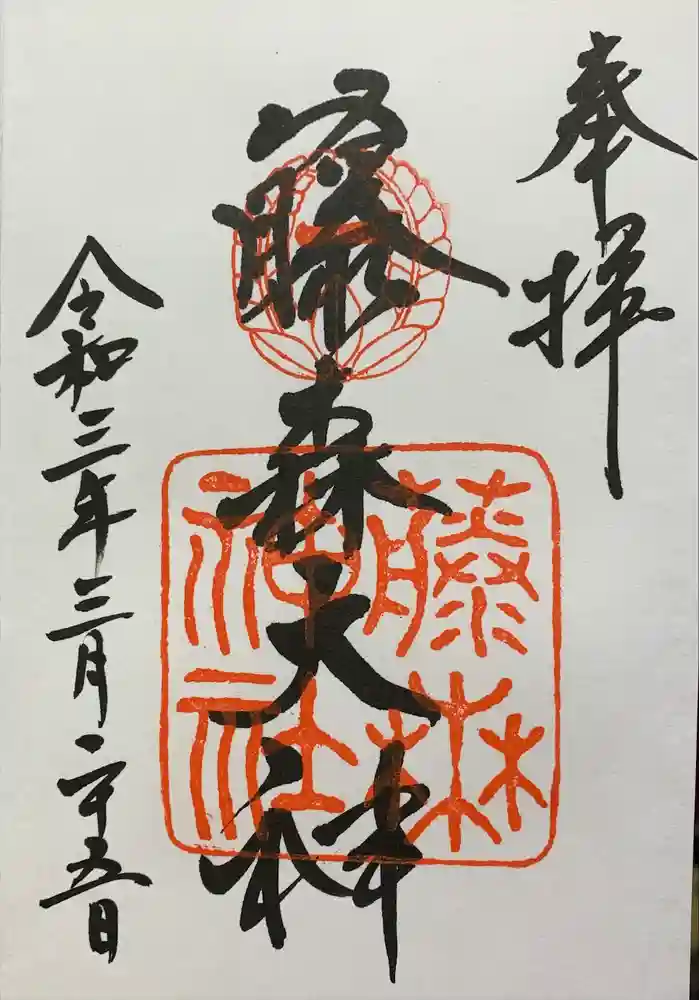 奉拝
藤森大神
藤森
神社
令和三年三月二十五日